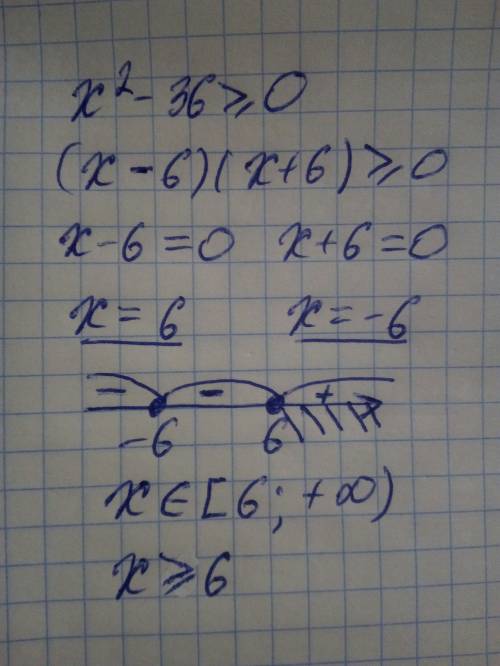 x² - 36 ⩾ 0
(x - 6)(x + 6) ⩾ 0
x - 6 = 0 x + 6 = 0
x = 6 x = -6
- - +
-6 6
x ∈ [6; +∞)
x ⩾ 6